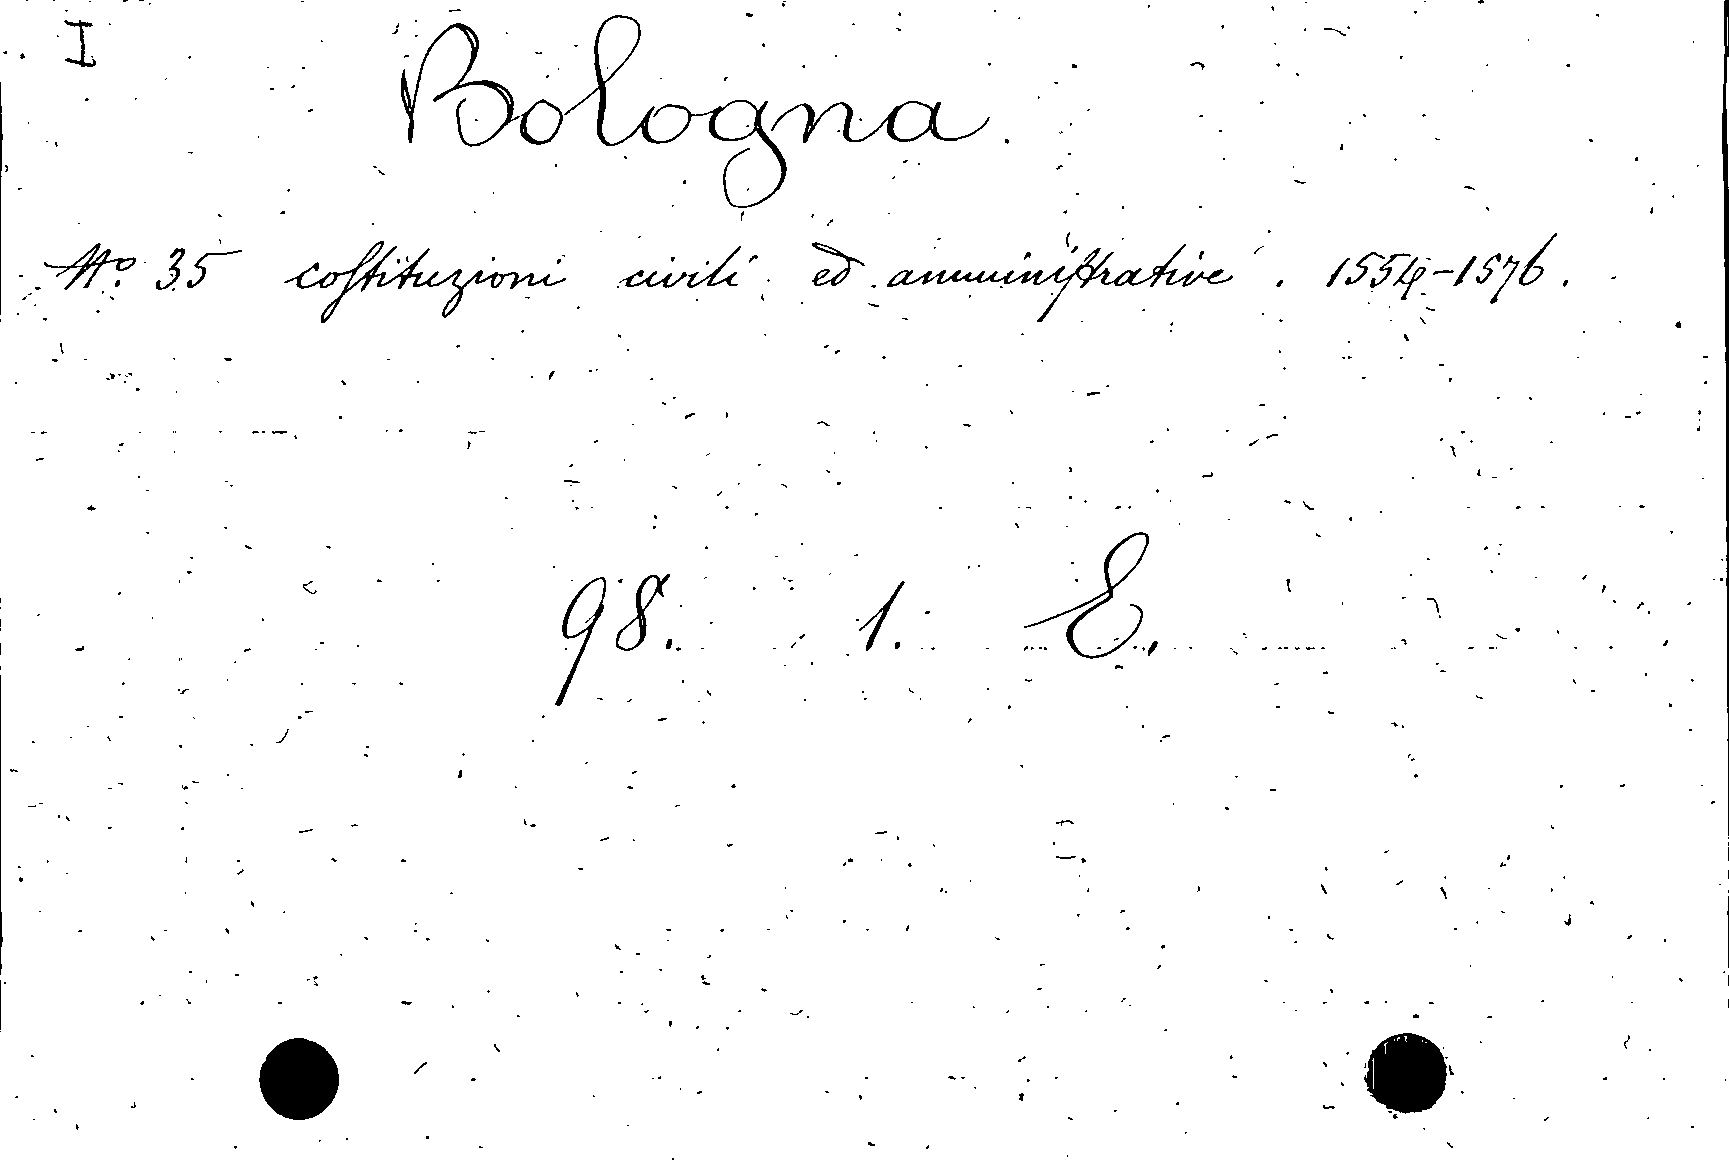 I
Bologna.
No. 35 costituzioni civili ed amministrative. 1554-1576.
98. 1. E.